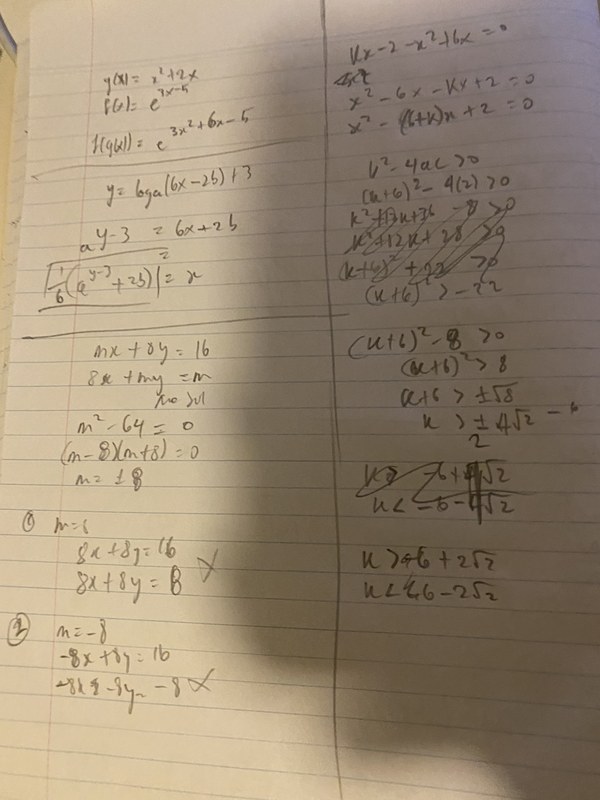 g(x) = x² + 2x
f(x) = e^(3x-5)
f(g(x)) = e^(3x²+6x-5)
y = loga(6x - 2b) + 3
a^(y-3) = 6x + 2b
=
1/6 (a^(y-3) + 2b) = x
mx + 8y = 16
8x + my = m
no sol
m² - 64 = 0
(m - 8)(m + 8) = 0
m = ± 8
①
8x + 8y = 16
8x + 8y = 8
②
m = -8
-8x + 8y = 16
Kx - 2 - x² + 6x = 0
x² - 6x - Kx + 2 = 0
x² - (6+K)x + 2 = 0
b² - 4ac > 0
(k+6)² - 4(2) > 0
k² + 12k + 36 - 8 > 0
k² + 12k + 28 > 0
(k+6)² + 22 > 0
(k+6)² > -22
(k+6)² - 8 > 0
(k+6)² > 8
k+6 > ±√8
k > ± 4√2 - 6
2
k < -6 - √2
k > -6 + 2√2
k < -6 - 2√2